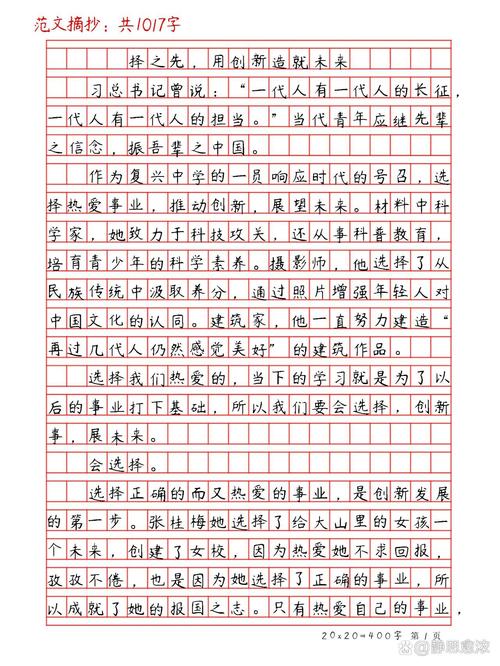 范文摘抄：共1017字
择之先，用创新造就未来
习总书记曾说：“一代人有一代人的长征，
一代人有一代人的担当。”当代青年应继先辈
之信念，振吾辈之中国。
作为复兴中学的一员响应时代的号召，选
择热爱事业，推动创新，展望未来。材料中科
学家，她致力于科技攻关，还从事科普教育，
培育青少年的科学素养。摄影师，他选择了从
民族传统中汲取养分，通过照片增强年轻人对
中国文化的认同。建筑家，他一直努力建造“
再过几代人仍然感觉美好”的建筑作品。
选择我们热爱的，当下的学习就是为了以
后的事业打下基础，所以我们要会选择，创新
事，展未来。
会选择。
选择正确的而又热爱的事业，是创新发展
的第一步。张桂梅她选择了给大山里的女孩一
个未来，创建了女校，因为热爱她不求回报，
孜孜不倦，也是因为她选择了正确的事业，所
以成就了她的报国之志。只有热爱自己的事业，
20x20=400字 第1页